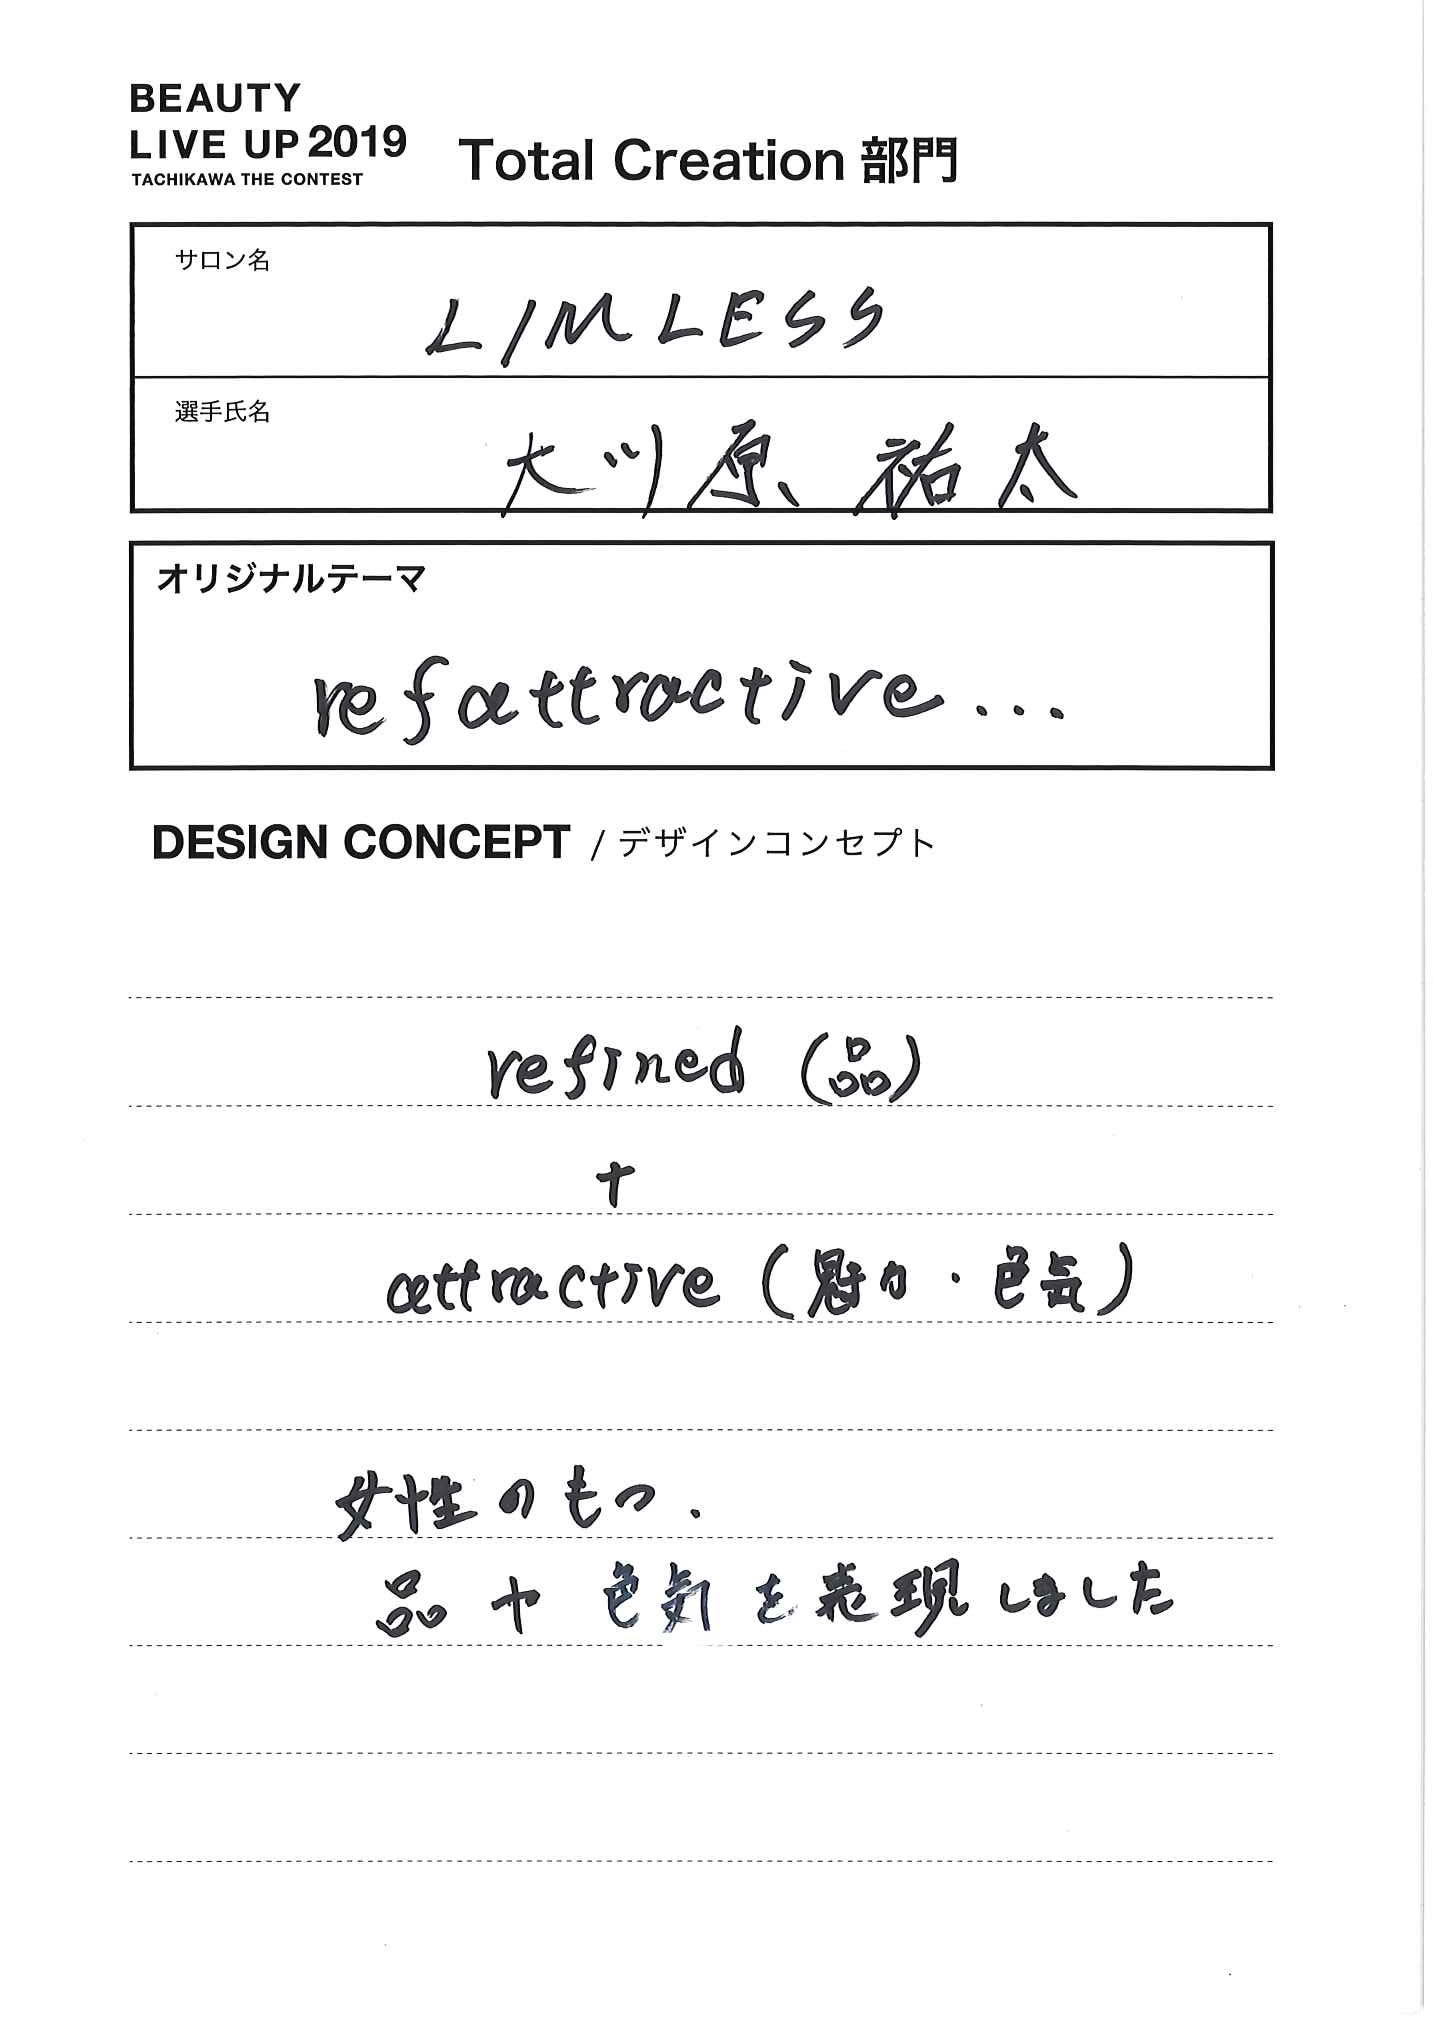 BEAUTY
LIVE UP 2019
TACHIKAWA THE CONTEST
Total Creation 部門
サロン名
LIMLESS
選手氏名
大川原、祐太
オリジナルテーマ
refattractive...
DESIGN CONCEPT / デザインコンセプト
refined (品)
+
attractive (魅力・色気)
女性のもつ.
品や色気を表現しました